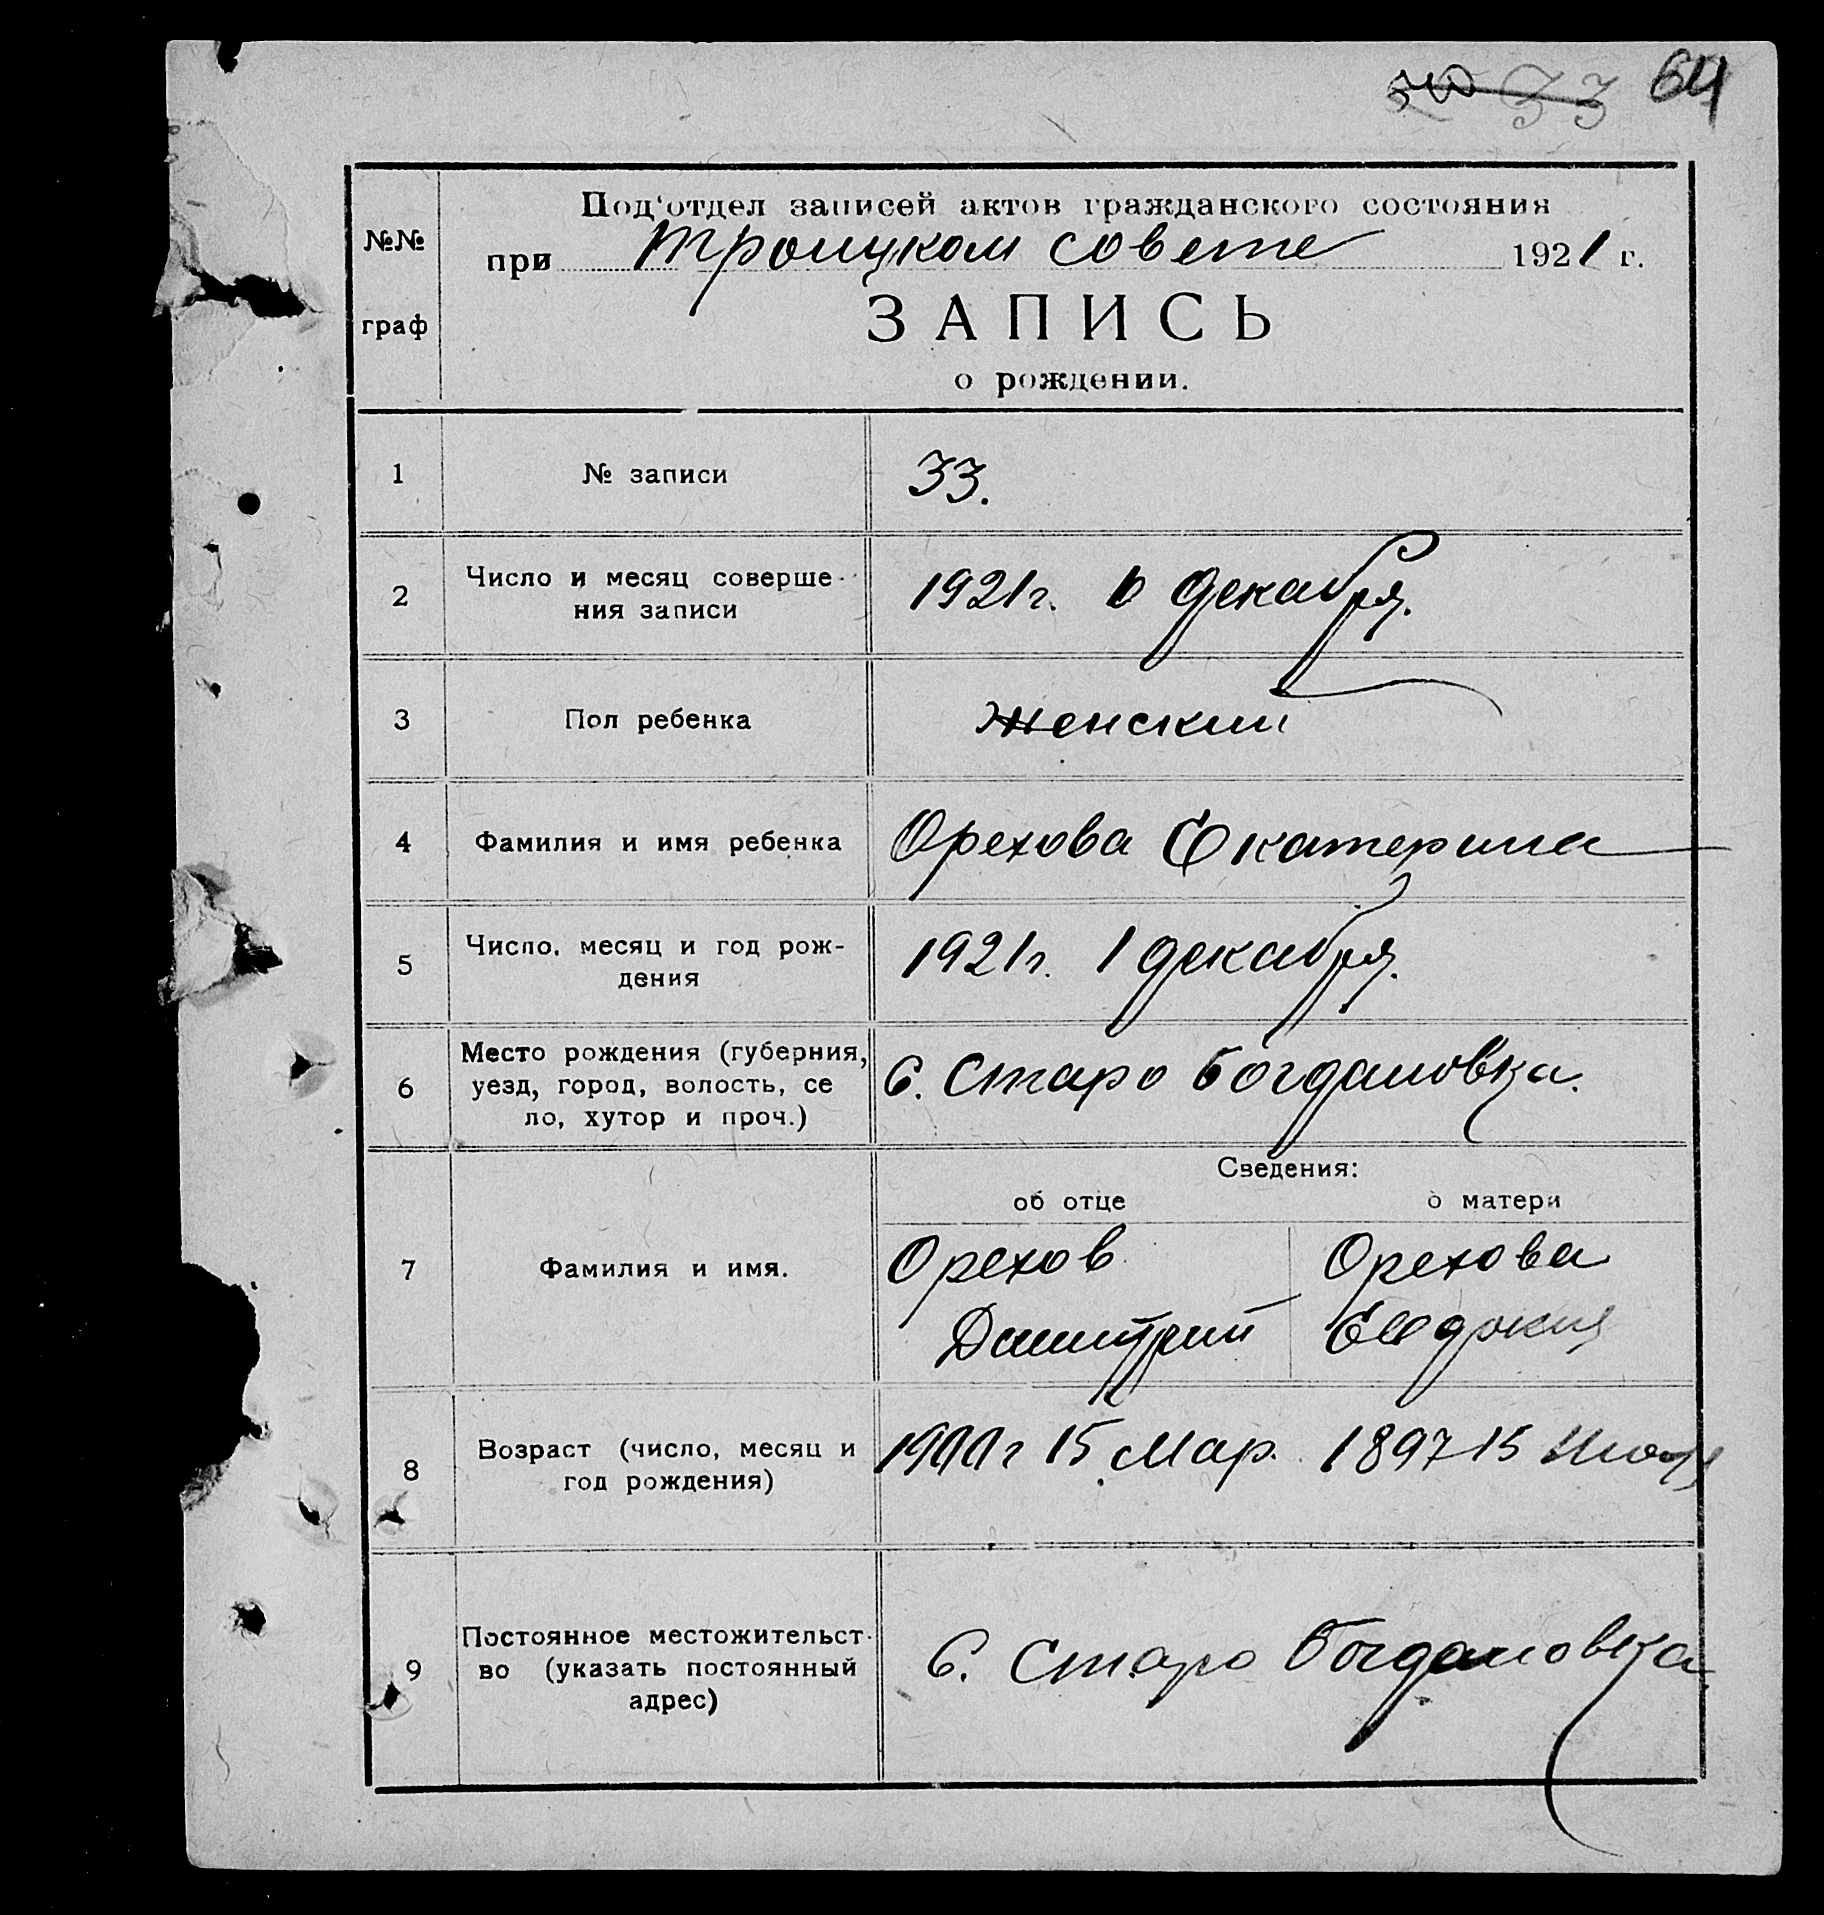 33 64
Под'отдел записей актов гражданского состояния
№№
при Троицком совете 1921 г.
граф
ЗАПИСЬ
о рождении.
1 № записи 33.
2 Число и месяц соверше-
ния записи
1921г. 6 декабря.
3 Пол ребенка Женский
4 Фамилия и имя ребенка Орехова Екатерина
5 Число, месяц и год рож-
дения
1921г. 1 декабря.
6 Место рождения (губерния,
уезд, город, волость, се
ло, хутор и проч.)
С. Старо Богдановка.
Сведения:
об отце о матери
7 Фамилия и имя.
Орехов Орехова
Дмитрий Евдокия
8 Возраст (число, месяц и
год рождения)
1900г 15 Мар. 1897 15
9 Постоянное местожительст-
во (указать постоянный
адрес)
С. Старо Богдановка